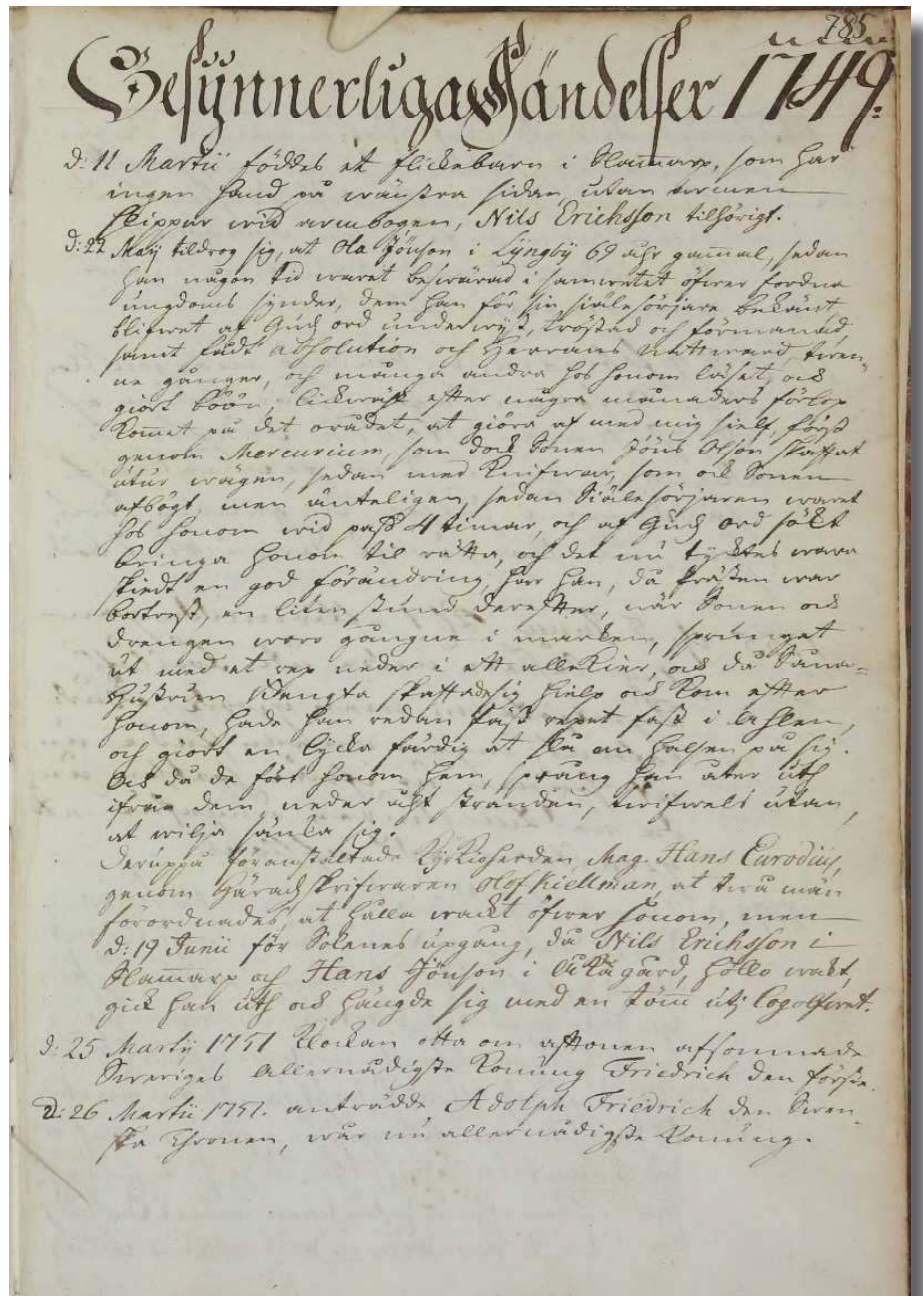 785
Besynnerliga Händelser 1749.
d: 11 Martii föddes et flickebarn i Slamarp, som har
ingen hand på wänstra sidan, utan armen
slippar wid armbogen, Nils Erichsson tilhörigt.
d: 22 Maÿ tildrog sig, at Ola Jönson i Lyngby 69 åhr gamal, sedan
han någon tid warit beswärad i samwetet öfwer fordna
ungdoms synder, dem han för sin siälesörjare bekänt,
blifwet af Guds ord underwyst, tröstad och förmanad,
samt fådt absolution och Herrans Nattward, tren-
ne gånger, och många andra hos honom läset, och
giort böön, likwäl efter några månaders förlop
komet på det orådet, at giöra af med sig sielf, först
genom Mercurium, som dock Sonen Jöns Olson skaffat
utur wägen, sedan med Knifwar, som ock Sonen
afbögt, men änteligen, sedan Siälesörjaren waret
hos honom wid pass 4 timar, och af Guds ord sökt
bringa honom til rätta, och det nu tycktes wara
skiedt en god förändring, har han, då Prästen war
bortrest, en liten stund derefter, när Sonen och
drengen woro gångne i marken, sprunget
ut med et rep neder i ett allekier, och då Sona-
Hustrun Bengta skaffade sig hielp och kom efter
honom, hade han redan fäst repet fast i ahlen,
och giort en lycka färdig at slå om halsen på sig.
Och då de fört honom hem, sprang han åter uth
ifrån dem, neder åht stranden, twifwels utan,
at wilja sänka sig.
Deruppå föranstaltade Kyrkioherden Mag. Hans Eurodius,
genom Häradsskrifwaren Olof Kiellman, at twå män
förordnades, at hålla wackt öfwer honom, men
d: 19 Junii för Solenes upgång, då Nils Erichsson i
Slamarp och Hans Jönson i gård, höllo wakt,
gick han uth och hängde sig med en töm uti
d: 25 Martÿ 1751 Klockan otta om aftonen afsomnade
Sweriges Allernådigste Konung Friedrich den förste.
D: 26 Martii 1751. anträdde Adolph Friedrich den Swen-
ska Thronen, wår nu allernådigste Konung.